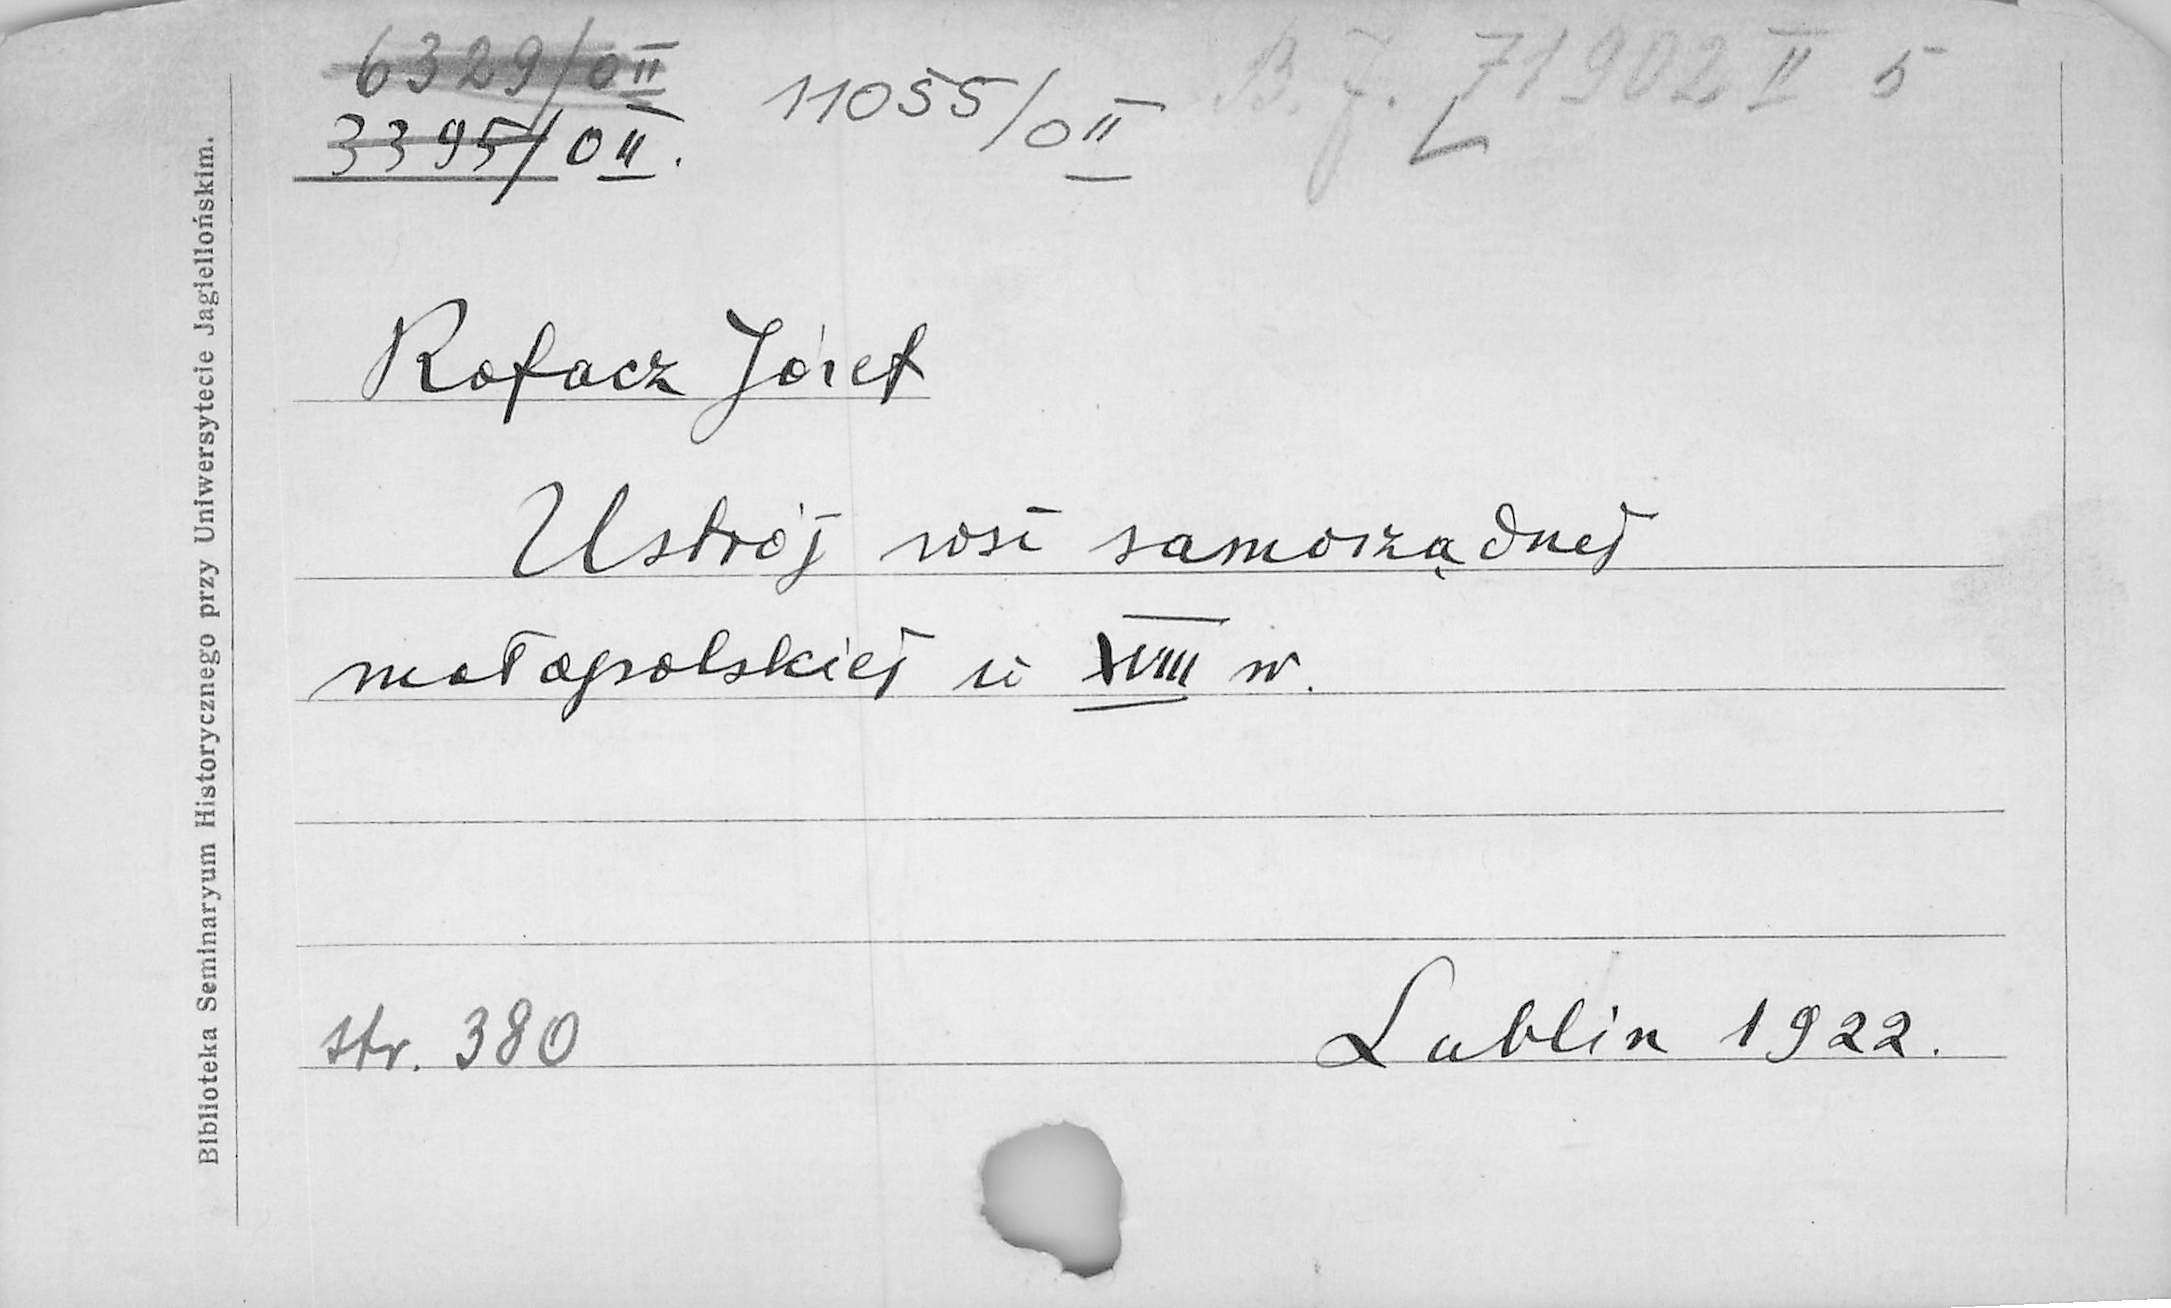 6329/0II
3395/0II.
11055/0II
B. J. 71902 II 5
Rafacz Józef
Ustrój wsi samorządnej
małopolskiej w XVIII w.
str. 380
Lublin 1922.
Biblioteka Seminaryum Historycznego przy Uniwersytecie Jagiellońskim.